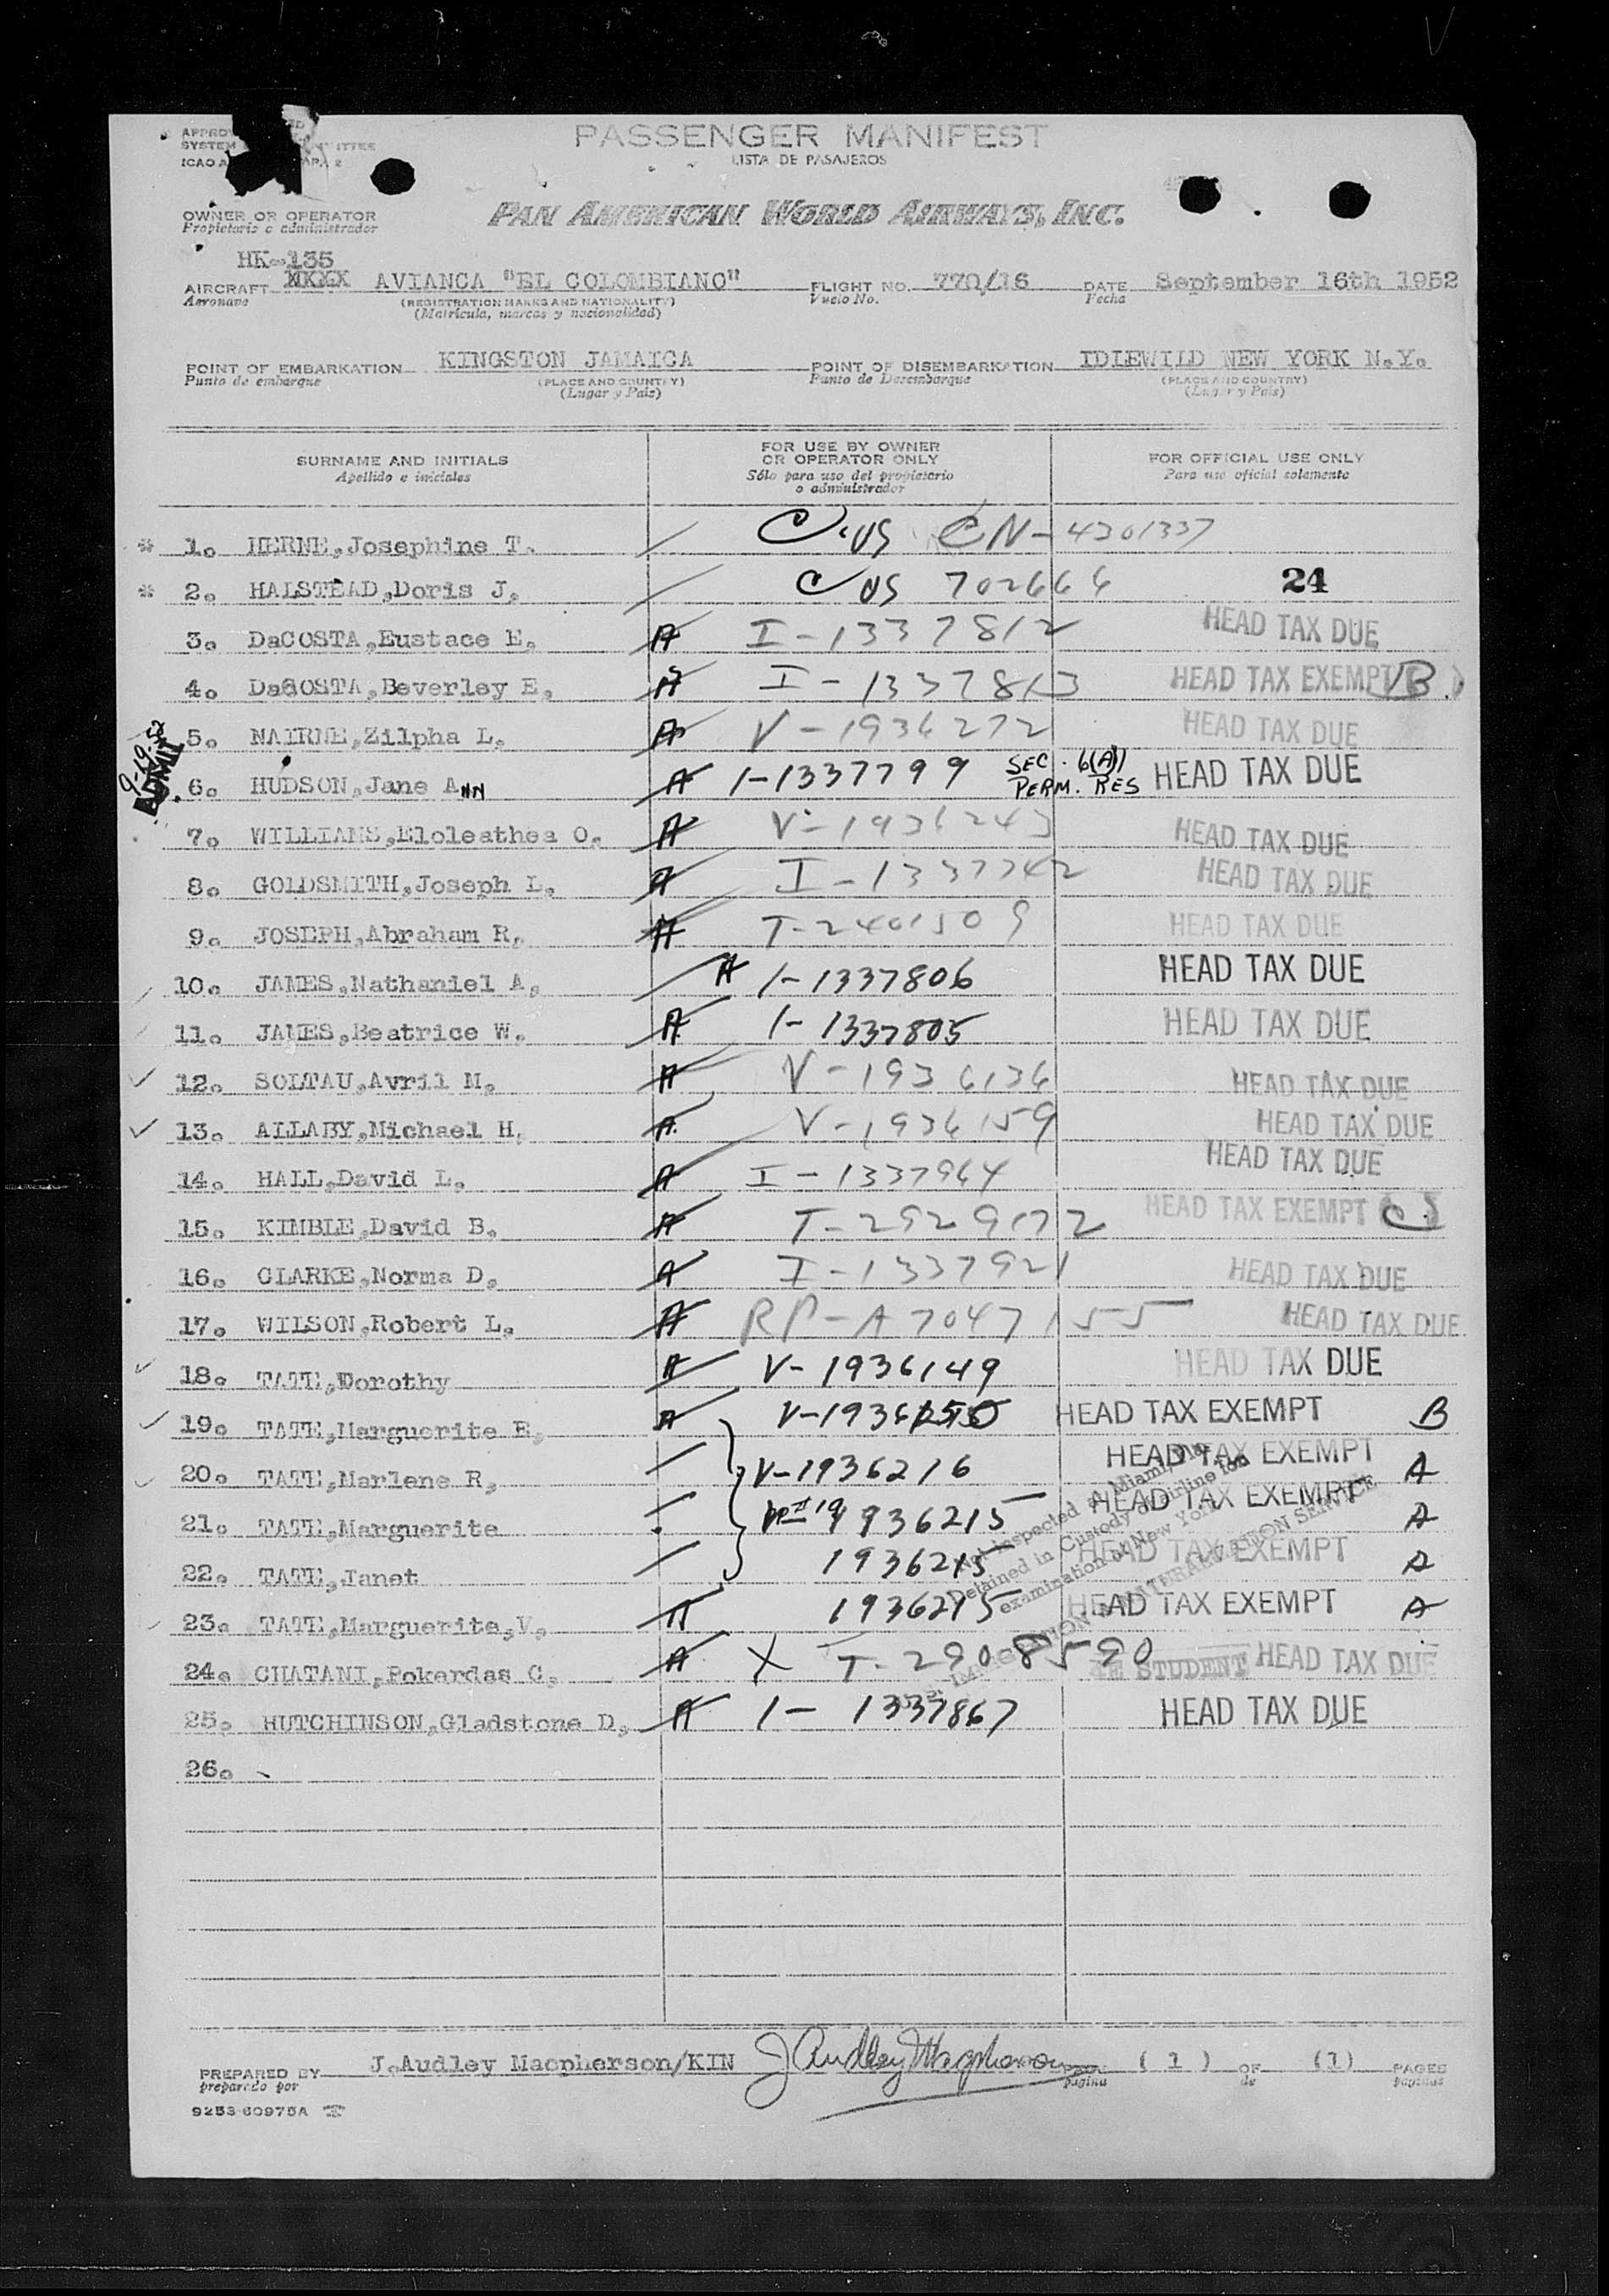 PASSENGER MANIFEST
LISTA DE PASAJEROS
APPROV
SYSTEM
ICAO A
OWNER OR OPERATOR
Propietario o administrador
PAN AMERICAN WORLD AIRWAYS, INC.
HK-135
AIRCRAFT AVIANCA "EL COLOMBIANO" FLIGHT NO. 770/16 DATE September 16th 1952
Aeronave (REGISTRATION MARKS AND NATIONALITY) Vuelo No. Fecha
(Matrícula, marcas y nacionalidad)
POINT OF EMBARKATION KINGSTON JAMAICA POINT OF DISEMBARKATION IDLEWILD NEW YORK N.Y.
Punto de embarque (PLACE AND COUNTRY) Punto de Desembarque (PLACE AND COUNTRY)
(Lugar y País) (Lugar y País)
SURNAME AND INITIALS FOR USE BY OWNER OR OPERATOR ONLY FOR OFFICIAL USE ONLY
Apellido e iniciales Sólo para uso del propietario o administrador Para uso oficial solamente
* 1. HERNE, Josephine T. C.US CN-4301337
* 2. HALSTEAD, Doris J. C US 702666 24
3. DaCOSTA, Eustace E. A I-1337812 HEAD TAX DUE
4. DaCOSTA, Beverley E. A I-1337813 HEAD TAX EXEMPT B
5. NAIRNE, Zilpha L. A V-1936272 HEAD TAX DUE
9-19-52 ADMIT
6. HUDSON, Jane Ann A I-1337799 SEC. 6(A)1 PERM. RES HEAD TAX DUE
7. WILLIAMS, Eloleathea O. A V-1936243 HEAD TAX DUE
8. GOLDSMITH, Joseph L. A I-1337742 HEAD TAX DUE
9. JOSEPH, Abraham R. A T-2401509 HEAD TAX DUE
10. JAMES, Nathaniel A. A I-1337806 HEAD TAX DUE
11. JAMES, Beatrice W. A I-1337805 HEAD TAX DUE
12. SOLTAU, Avril M. A V-1936136 HEAD TAX DUE
13. ALLABY, Michael H. A V-1936159 HEAD TAX DUE
14. HALL, David L. A I-1337964 HEAD TAX DUE
15. KIMBLE, David B. A T-2929172 HEAD TAX EXEMPT
16. CLARKE, Norma D. A I-1337921 HEAD TAX DUE
17. WILSON, Robert L. A RP-A7047155 HEAD TAX DUE
18. TATE, Dorothy A V-1936149 HEAD TAX DUE
19. TATE, Marguerite E. A HEAD TAX EXEMPT B
20. TATE, Marlene R. V-1936216 HEAD TAX EXEMPT A
21. TATE, Marguerite 1936215 HEAD TAX EXEMPT A
22. TATE, Janet 1936215 HEAD TAX EXEMPT A
23. TATE, Marguerite, V. A 1936215 HEAD TAX EXEMPT A
Not inspected at Miami, Fla.
Detained in Custody of airline for
examination at New York
IMMIGRATION & NATURALIZATION SERVICE
24. CHATANI, Pokardas C. A X T-2908590 4E STUDENT HEAD TAX DUE
25. HUTCHINSON, Gladstone D. A I-1337867 HEAD TAX DUE
26.
PREPARED BY J. Audley Macpherson/KIN J Audley Macpherson (1) OF (1) PAGES
preparado por página de páginas
9253-60975A